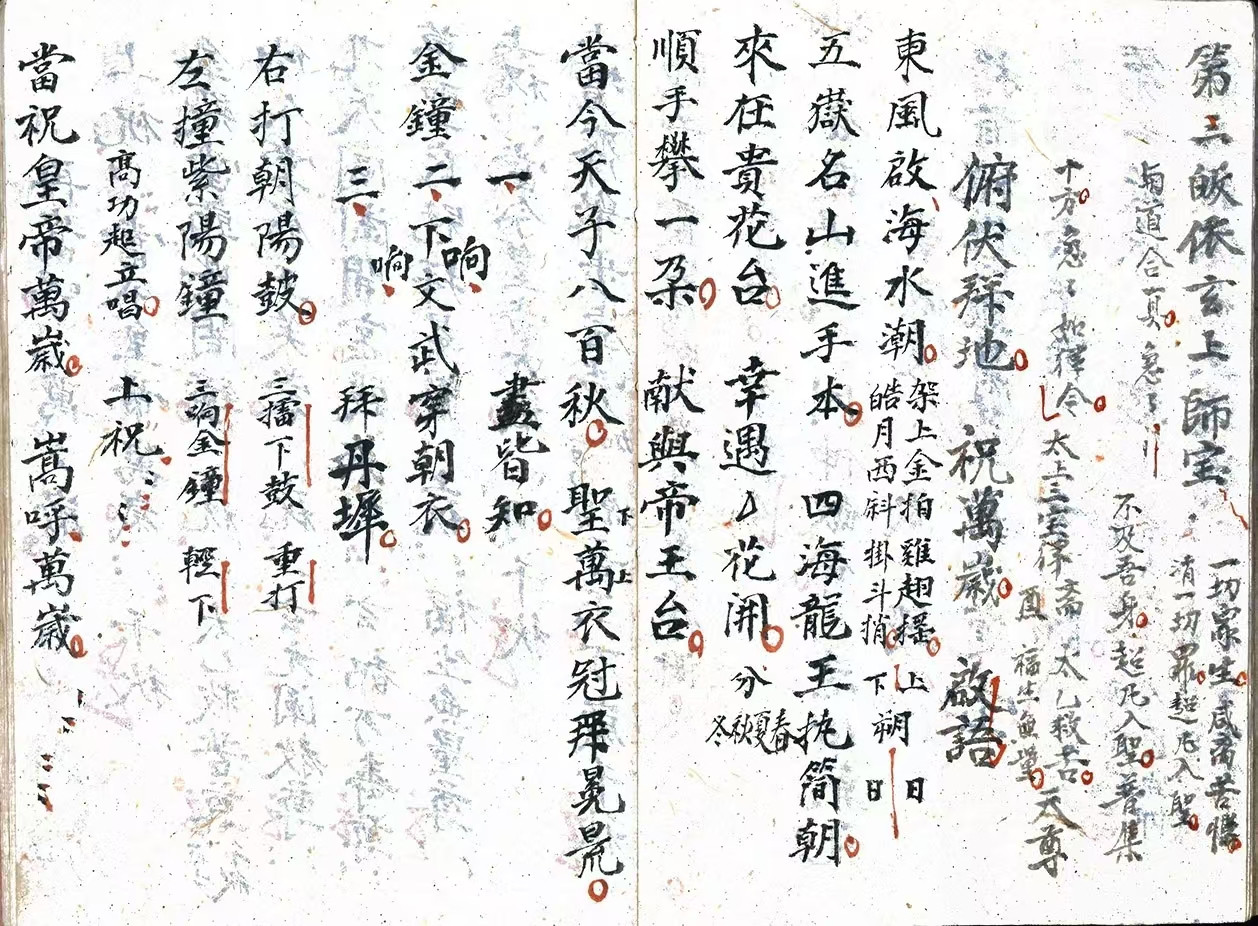 第三皈依玄上師宝
一切眾生咸脫苦惱
消一切罪超凡入聖
與道合真急了
不及吾身超凡入聖普集
十方急々如律令
太上三宝律斋太乙救苦天尊
福生無量
俯伏拜地 祝萬歲 啟語
東風啟海水潮 架上金拍雞翅摇 上朔日
皓月西斜掛斗捎 下 日
五嶽名山進手本 四海龍王执简朝
來在貴花台 幸遇々花開 分春夏秋冬
順手攀一朶 献與帝王台
當今天子八百秋 聖萬衣冠拜冕旒
下上
一响 盡皆知
金鐘二下响文武穿朝衣
三 拜丹墀
右打朝陽鼓 三擂下鼓 重打
左撞紫陽鐘 三响金鐘 輕下
高功起立唱 上祝
當祝皇帝萬歲 嵩呼萬歲